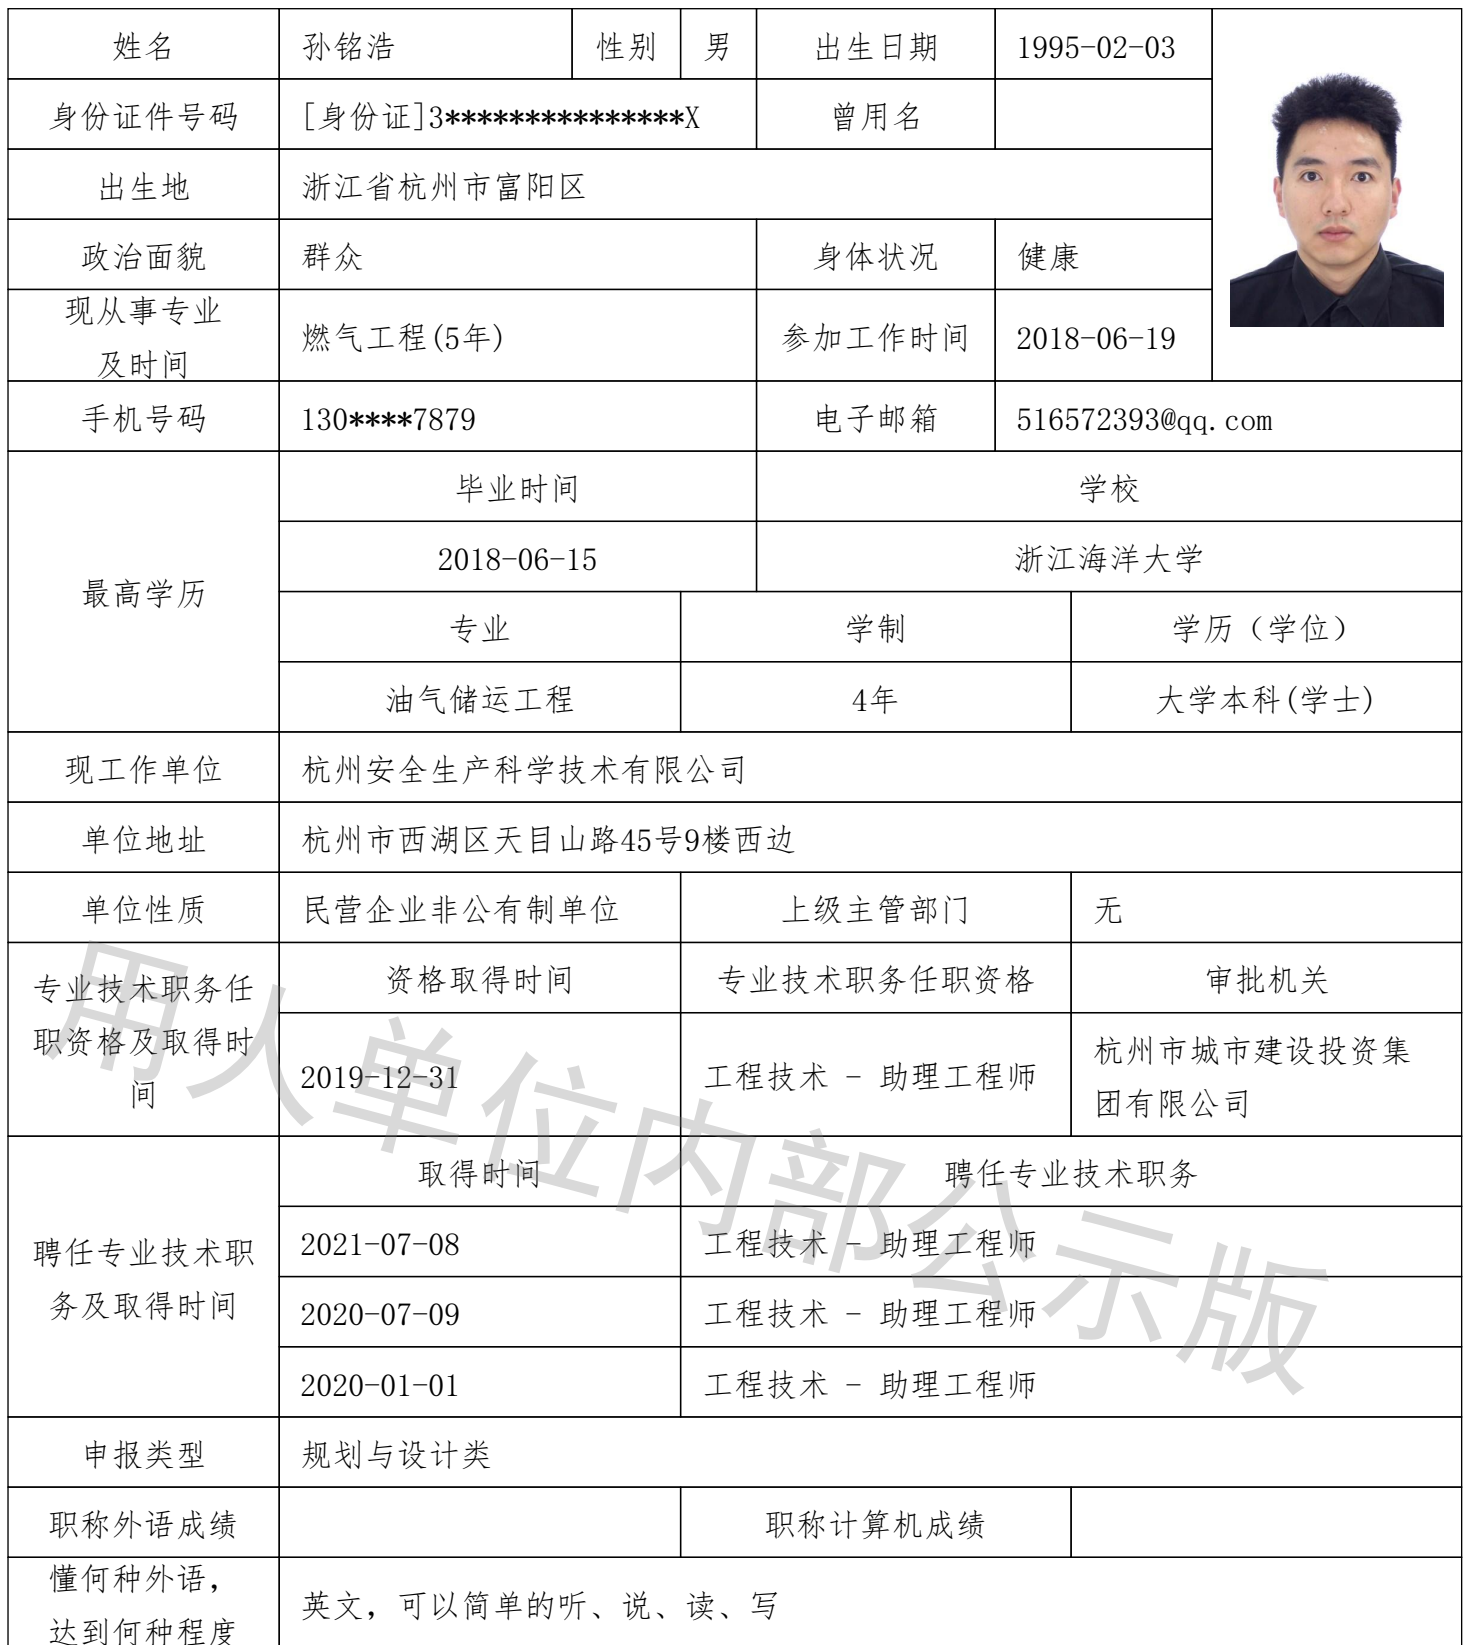 姓名 孙铭浩 性别 男 出生日期 1995-02-03
身份证件号码 [身份证]3***************X 曾用名
出生地 浙江省杭州市富阳区
政治面貌 群众 身体状况 健康
现从事专业
及时间 燃气工程(5年) 参加工作时间 2018-06-19
手机号码 130****7879 电子邮箱 516572393@qq.com
最高学历
毕业时间 学校
2018-06-15 浙江海洋大学
专业 学制 学历（学位）
油气储运工程 4年 大学本科(学士)
现工作单位 杭州安全生产科学技术有限公司
单位地址 杭州市西湖区天目山路45号9楼西边
单位性质 民营企业非公有制单位 上级主管部门 无
专业技术职务任
职资格及取得时
间
资格取得时间 专业技术职务任职资格 审批机关
2019-12-31 工程技术 - 助理工程师 杭州市城市建设投资集
团有限公司
聘任专业技术职
务及取得时间
取得时间 聘任专业技术职务
2021-07-08 工程技术 - 助理工程师
2020-07-09 工程技术 - 助理工程师
2020-01-01 工程技术 - 助理工程师
申报类型 规划与设计类
职称外语成绩 职称计算机成绩
懂何种外语，
达到何种程度 英文，可以简单的听、说、读、写
用人单位内部公示版